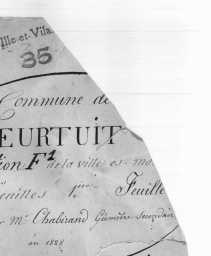 Ille-et-Vila
35
Commune de
EURTUIT
ion F¹ de la ville es mo
euilles 1ère Feuille
r Mr Chabirand Géomètre Secondair
en 1828